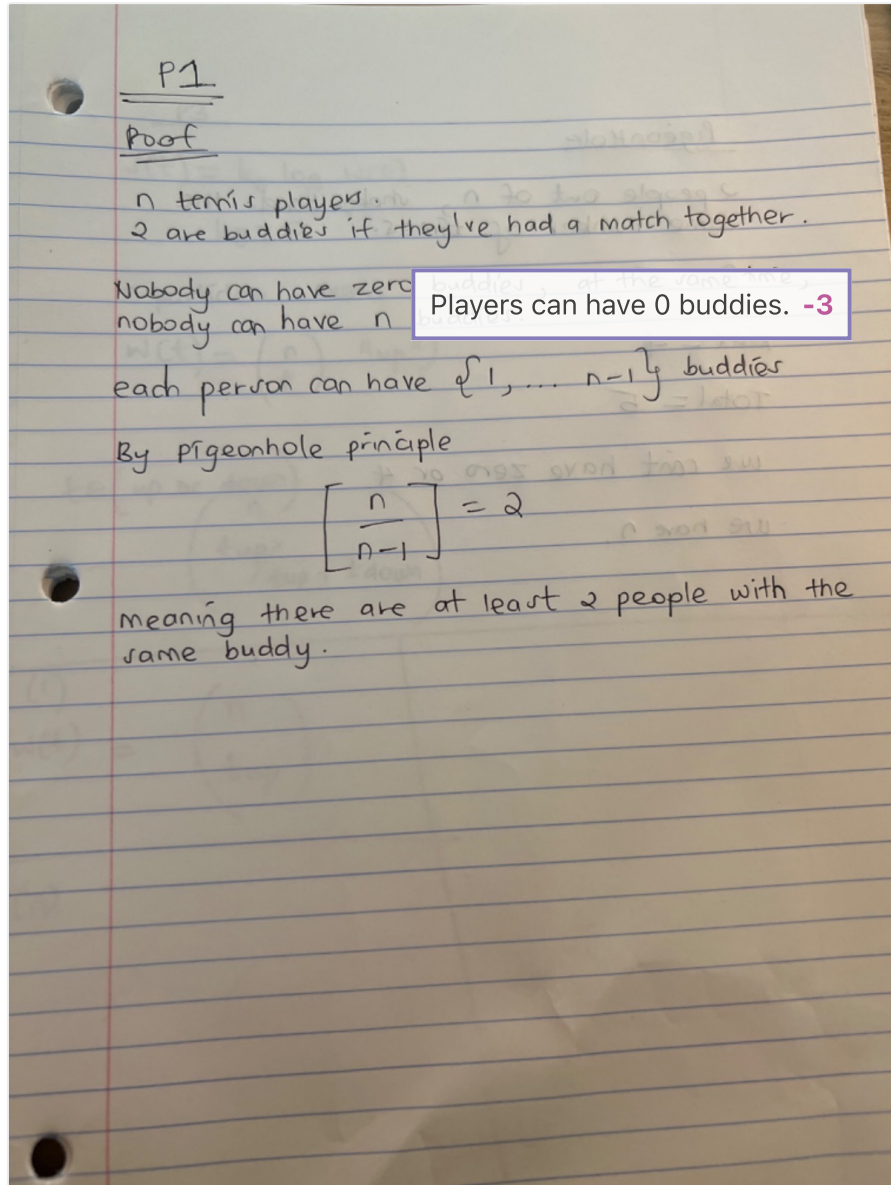 P1
Poof
n tennis players.
2 are buddies if they've had a match together.
Nobody can have zero
nobody can have n
Players can have 0 buddies. -3
each person can have {1, ... n-1} buddies
By pigeonhole principle
[n/n-1] = 2
meaning there are at least 2 people with the
same buddy.